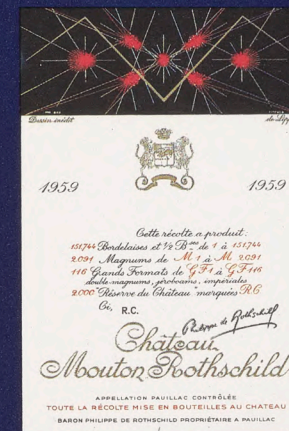 Dessin inédit de Lipp
1959 1959
Cette récolte a produit:
151744 Bordelaises et ½ B.ses de 1 à 151744
2.091 Magnums de M 1 à M 2.091
116 Grands Formats de GF1 à GF116
double-magnums, jéroboams, impériales
2.000 "Réserve du Château" marquées R.C
Ci, R.C.
Philippe de Rothschild
Château
Mouton Rothschild
APPELLATION PAUILLAC CONTRÔLÉE
TOUTE LA RÉCOLTE MISE EN BOUTEILLES AU CHATEAU
BARON PHILIPPE DE ROTHSCHILD PROPRIÉTAIRE A PAUILLAC